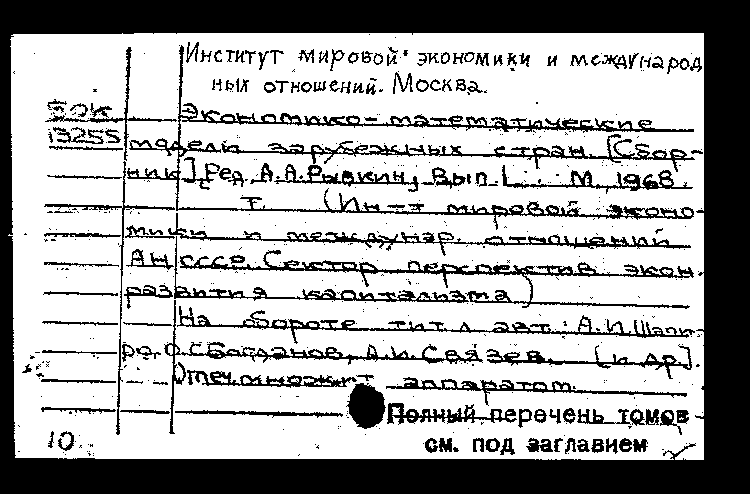 Институт мировой экономики и международ
ных отношений. Москва.
БЭК Экономико-математические
13255 модели зарубежных стран. [Сбор-
ник]. Ред. А.А.Рывкин, Вып.1... М., 1968.
т. (Ин-т мировой эконо-
мики и междунар. отношений
АН СССР. Сектор перспектив экон.
развития капитализма)
На обороте тит.л. авт.: А.И.Шапи-
ро, О.С.Богданов, А.И.Связев. [и др].
Отпеч.множит. аппаратом.
Полный перечень томов
10 см. под заглавием